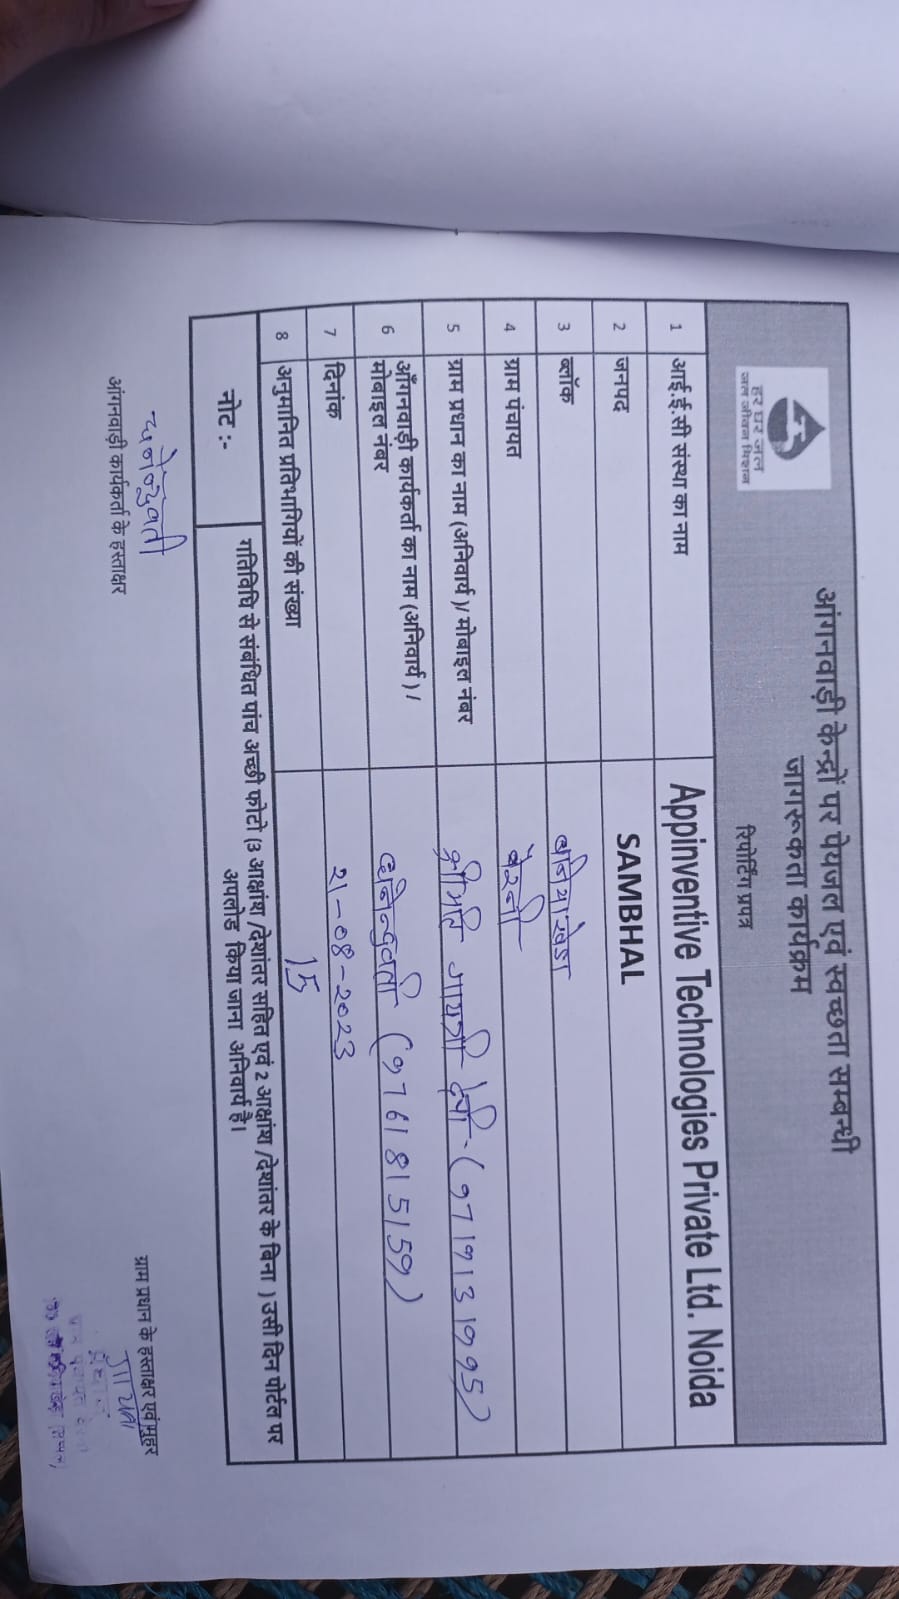 आंगनवाड़ी केन्द्रों पर पेयजल एवं स्वच्छता सम्बन्धी
जागरूकता कार्यक्रम
हर घर जल
जल जीवन मिशन
रिपोर्टिंग प्रपत्र
1 आई.ई.सी संस्था का नाम Appinventive Technologies Private Ltd. Noida
2 जनपद SAMBHAL
3 ब्लॉक बनियाखेडा
4 ग्राम पंचायत
5 ग्राम प्रधान का नाम (अनिवार्य )/ मोबाइल नंबर श्रीमति गायत्री देवी - (9719131995)
6 आँगनवाड़ी कार्यकर्ता का नाम (अनिवार्य ) /
मोबाइल नंबर (9761815159)
7 दिनांक 21-08-2023
8 अनुमानित प्रतिभागियों की संख्या 15
नोट :- गतिविधि से संबंधित पांच अच्छी फोटो (3 आक्षांश /देशांतर सहित एवं 2 आक्षांश /देशांतर के बिना ) उसी दिन पोर्टल पर
अपलोड किया जाना अनिवार्य है।
आंगनवाड़ी कार्यकर्ता के हस्ताक्षर
ग्राम प्रधान के हस्ताक्षर एवं मुहर